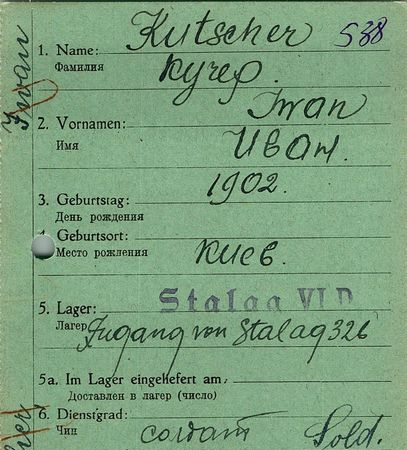 Kutscher 538
1. Name:
Фамилия
Кучер.
Iwan
2. Vornamen:
Имя
Иван.
1902.
3. Geburtstag:
День рождения
Geburtsort:
Место рождения
Киев.
5. Lager: Stalag VI D
Лагер Zugang von Stalag 326
5a. Im Lager eingeliefert am:
Доставлен в лагер (число)
6. Dienstgrad:
Чин солдат Sold.
Iwan